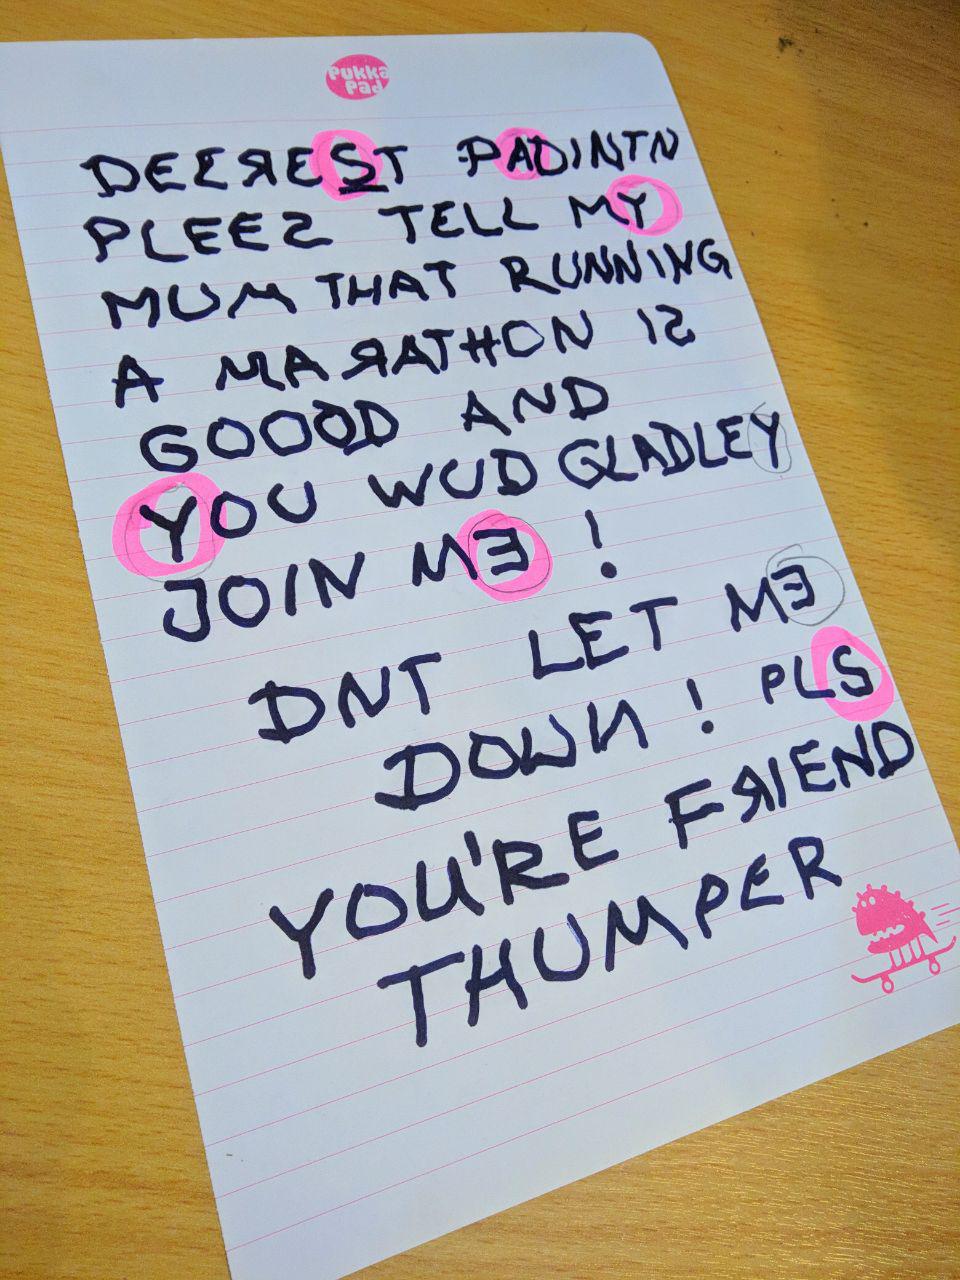 Pukka
Pad
DEEREST PADINTN
PLEES TELL MY
MUM THAT RUNNING
A MARATHON IS
GOOOD AND
YOU WUD GLADLEY
JOIN ME !
DNT LET ME
DOWN ! PLS
YOU'RE FRIEND
THUMPER